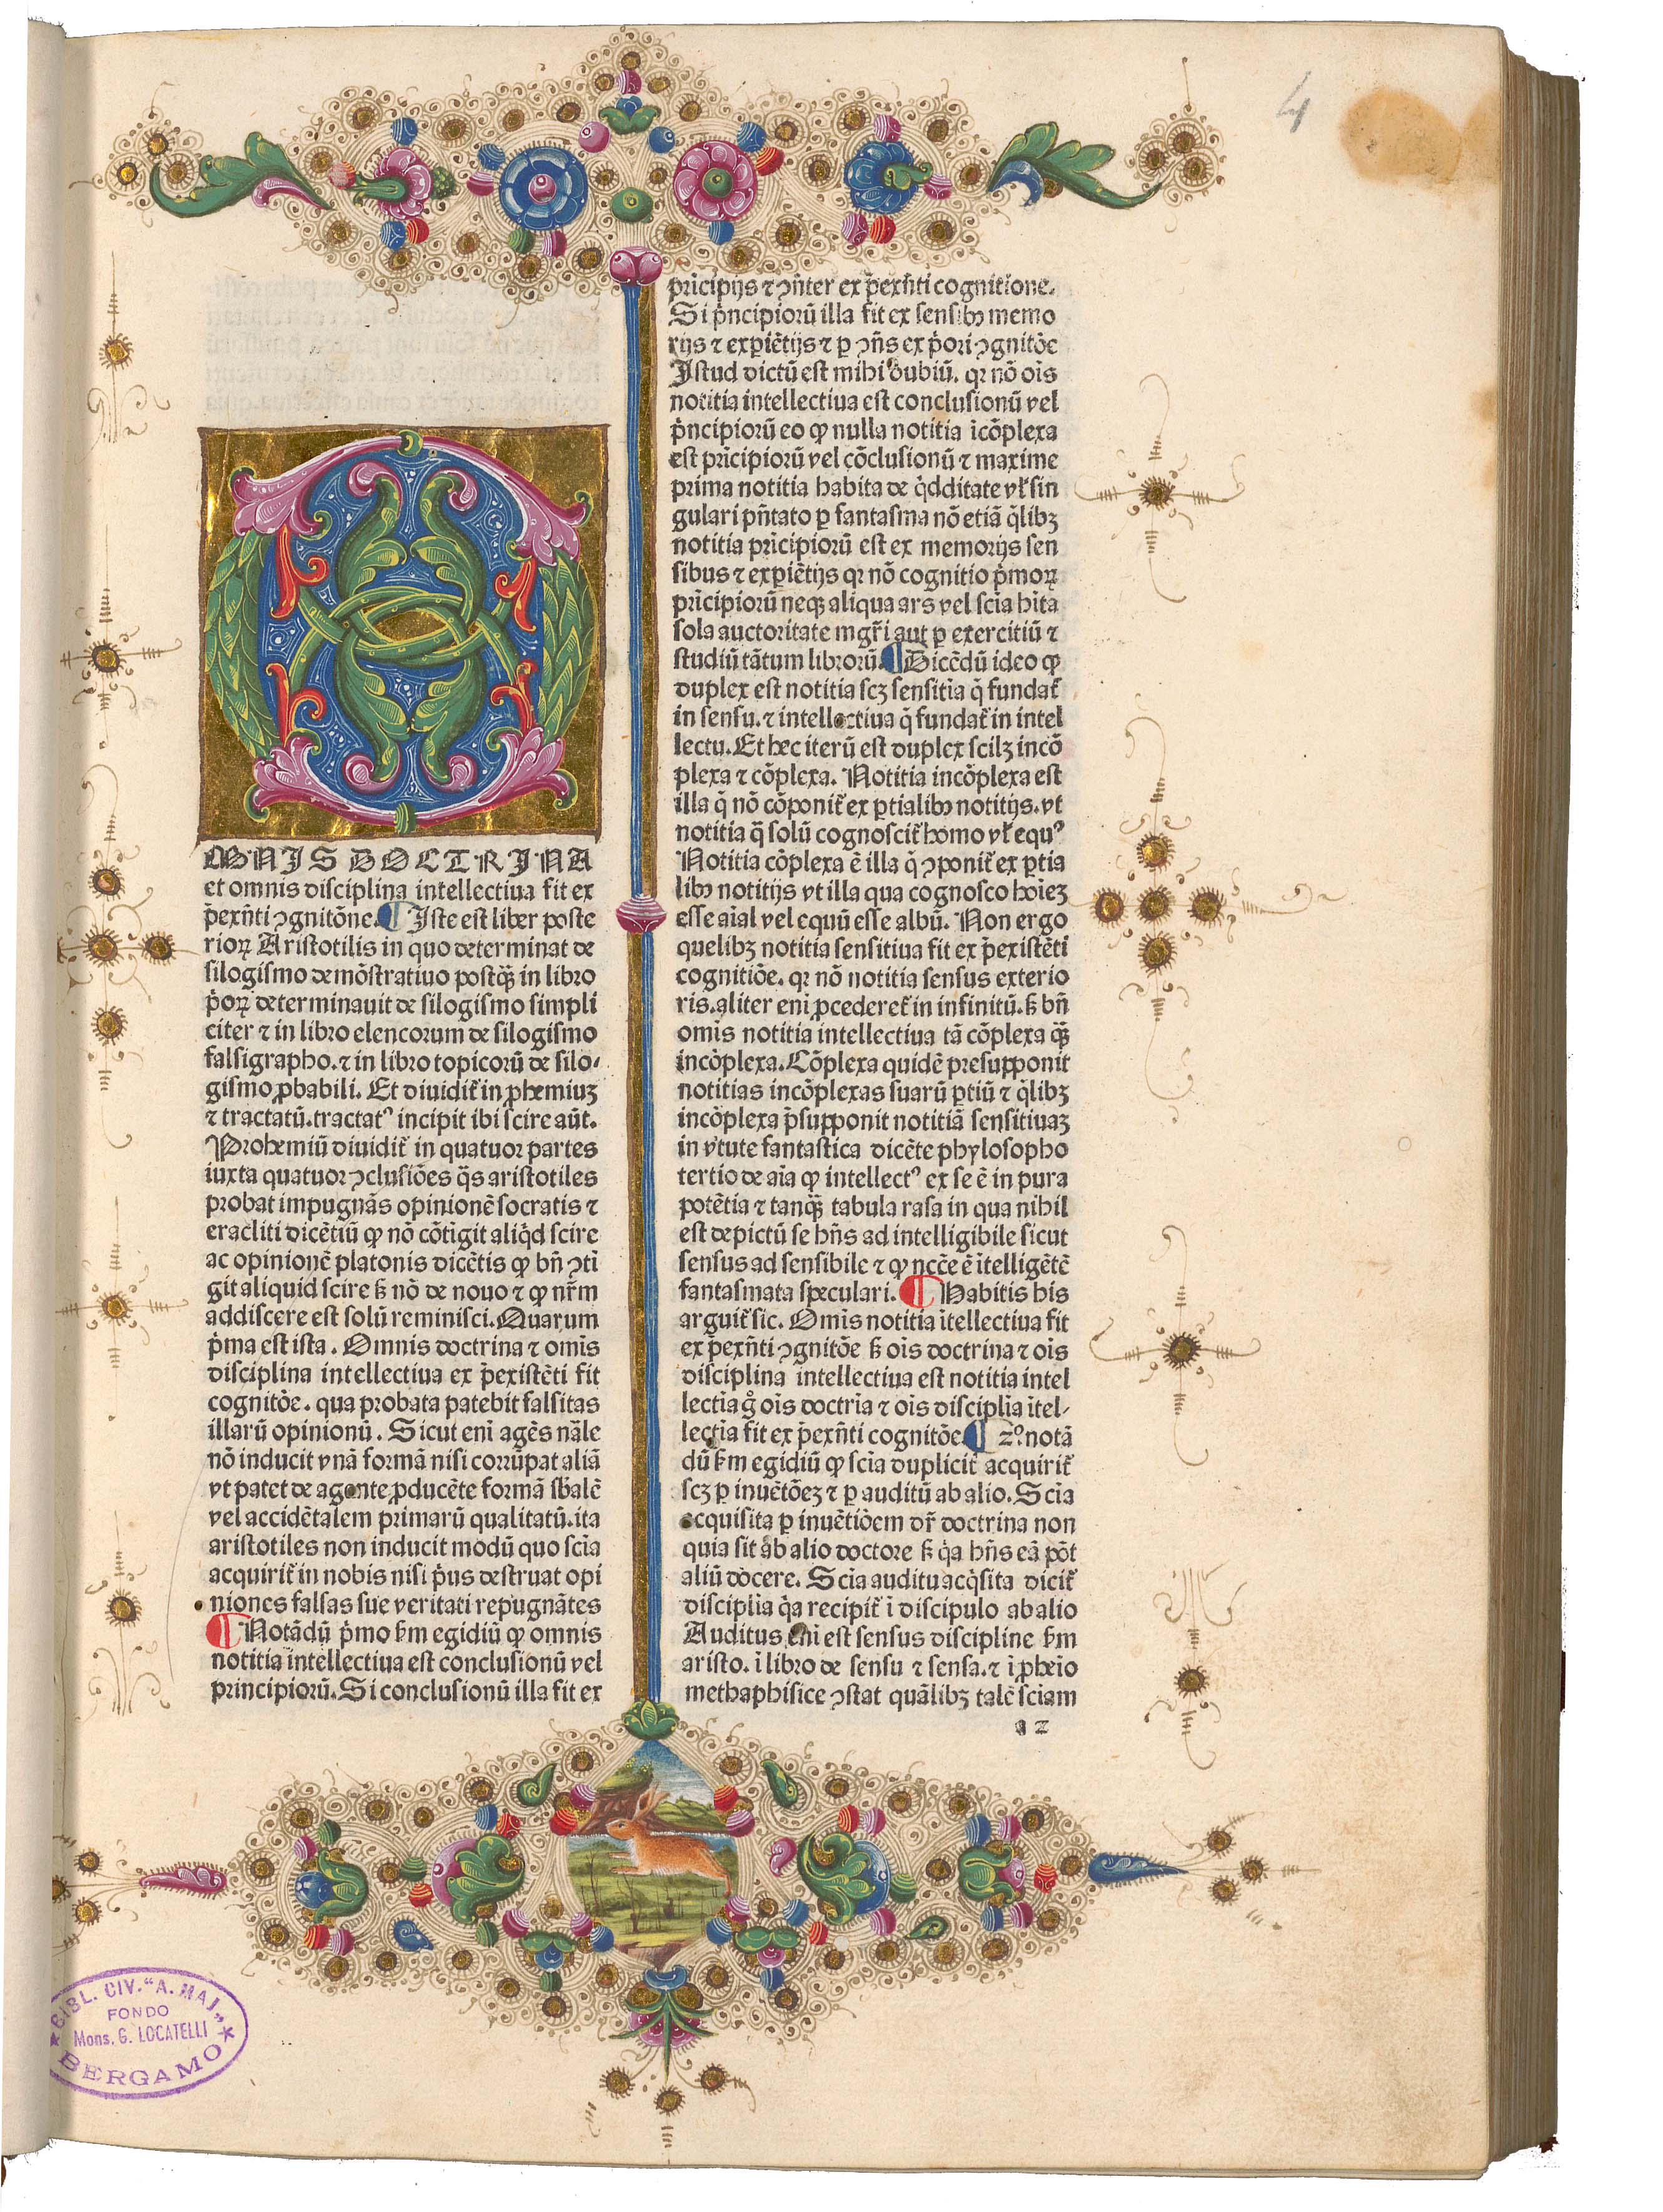 4
O
MNIS DOCTRINA
et omnis disciplina intellectiua fit ex
p̄exn̄ti ꝯgnitōne. ¶ Iste est liber poste
rioꝝ Aristotilis in quo determinat de
silogismo demōstratiuo postq̄ꝫ in libro
p̄oꝝ determinauit de silogismo simpli
citer ⁊ in libro elencorum de silogismo
falsigrapho. ⁊ in libro topicorū de silo-
gismo ꝓbabili. Et diuidit᷑ in ꝓhemiuꝫ
⁊ tractatū. tractatꝰ incipit ibi scire aūt.
Prohemiū diuidit᷑ in quatuor partes
iuxta quatuor ꝯclusiōes q̄s aristotiles
probat impugnās opinionē socratis ⁊
eracliti dicētiū ꝙ nō cōtīgit aliq̇d scire
ac opinionē platonis dicētis ꝙ bn̄ ꝯti
git aliquid scire ꝣ nō de nouo ⁊ ꝙ nr̄m
addiscere est solū reminisci. Quarum
p̄ma est ista. Omnis doctrina ⁊ omīs
disciplina intellectiua ex p̄existēti fit
cognitōe. qua probata patebit falsitas
illarū opinionū. Sicut enī agēs nāle
nō inducit vnā formā nisi corrūpat aliā
vt patet de agente ꝓducēte formā sb̄alē
vel accidētalem primarū qualitatū. ita
aristotiles non inducit modū quo scīa
acquirit᷑ in nobis nisi p̄us destruat opi
niones falsas sue veritati repugnātes
¶ Notādū p̄mo ẜm egidiū ꝙ omnis
notitia intellectiua est conclusionū vel
principiorū. Si conclusionū illa fit ex
prīcipijs ⁊ ꝯn̄ter ex p̄exn̄ti cognitione.
Si p̄ncipiorū illa fit ex sensibꝰ memo
rijs ⁊ exꝑiētijs ⁊ ꝑ ꝯn̄s ex p̄ori ꝯgnitōe
Istud dictū est mihi dubiū. qꝛ nō oīs
notitia intellectiua est conclusionū vel
p̄ncipiorū eo ꝙ nulla notitia īcōplexa
est prīcipiorū vel cōclusionū ⁊ maxime
prima notitia habita de q̇dditate vł sin
gulari pn̄tato ꝑ fantasma nō etiā q̄libꝫ
notitia prīcipiorū est ex memorijs sen
sibus ⁊ exꝑiētijs qꝛ nō cognitio p̄moꝝ
prīcipiorū neqꝫ aliqua ars vel scīa hīta
sola auctoritate mgr̄i aut ꝑ exercitiū ⁊
studiū tātum librorū. ¶ Dicēdū ideo ꝙ
duplex est notitia scꝫ sensitīa q̄ fundat᷑
in sensu. ⁊ intellectiua q̄ fundat᷑ in intel
lectu. Et hec iterū est duplex scilꝫ incō
plexa ⁊ cōplexa. Notitia incōplexa est
illa q̄ nō cōponit᷑ ex ꝑtialibꝰ notitijs. vt
notitia q̄ solū cognoscit᷑ homo vł equꝰ
Notitia cōplexa ē illa q̄ ꝯponit᷑ ex ꝑtia
libꝰ notitijs vt illa qua cognosco hoīeꝫ
esse aīal vel equū esse albū. Non ergo
quelibꝫ notitia sensitiua fit ex p̄existēti
cognitiōe. qꝛ nō notitia sensus exterio
ris. aliter enī ꝓcederet᷑ in infinitū. ꝣ bn̄
omīs notitia intellectiua tā cōplexa q̄ꝫ
incōplexa. Cōplexa quidē presupponit
notitias incōplexas suarū ꝑtiū ⁊ q̄libꝫ
incōplexa p̄supponit notitiā sensitiuaꝫ
in v̄tute fantastica dicēte phylosopho
tertio de aīa ꝙ intellectꝰ ex se ē in pura
potētia ⁊ tanq̄ꝫ tabula rasa in qua nihil
est depictū se hn̄s ad intelligibile sicut
sensus ad sensibile ⁊ ꝙ nccē ē ītelligētē
fantasmata speculari. ¶ Habitis his
arguit᷑ sic. Omīs notitia ītellectiua fit
ex p̄exn̄ti ꝯgnitōe ꝣ oīs doctrina ⁊ oīs
disciplina intellectiua est notitia intel
lectīa gͦ oīs doctrīa ⁊ oīs disciplīa ītel-
lectīa fit ex p̄exn̄ti cognitōe ¶ 2ͦ. notā
dū ẜm egidiū ꝙ scīa duplicit᷑ acquirit᷑
scꝫ ꝑ inuētōeꝫ ⁊ ꝑ auditū ab alio. Scīa
acquisita ꝑ inuētiōem dr̄ doctrina non
quia sit ab alio doctore ꝣ q̇a hn̄s eā pōt
aliū docere. Scīa auditu acq̇sita dicit᷑
disciplīa q̇a recipit᷑ ī discipulo ab alio
Auditus enī est sensus discipline ẜm
aristo. ī libro de sensu ⁊ sensa. ⁊ ī ꝓheīo
methaphisice ꝯstat quālibꝫ talē sciam
a 2
BIBL. CIV. "A. MAJ"
FONDO
Mons. G. LOCATELLI
BERGAMO